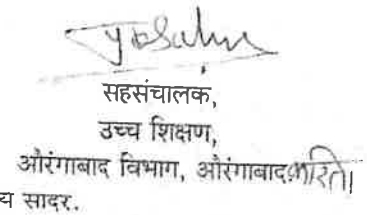 सहसंचालक,
उच्च शिक्षण,
औरंगाबाद विभाग, औरंगाबाद करिता
य सादर.